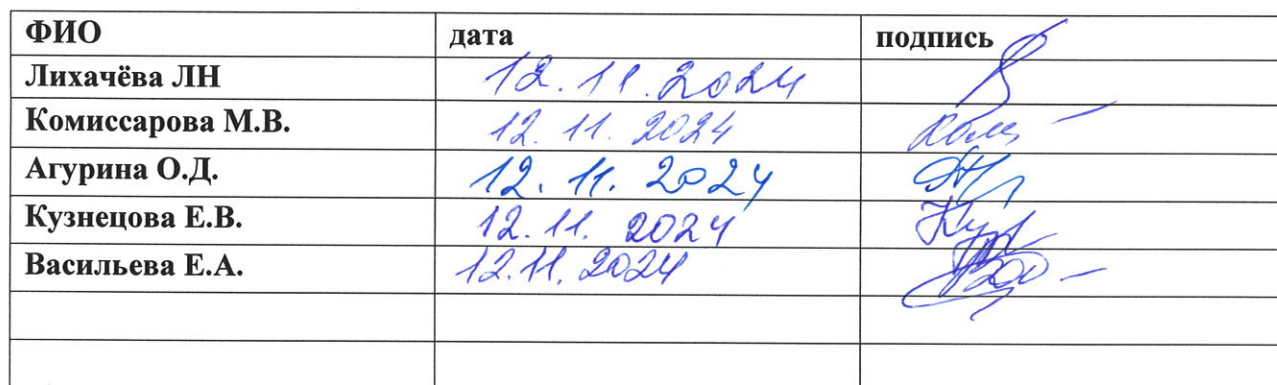 ФИО дата подпись
Лихачёва ЛН 12.11.2024
Комиссарова М.В. 12.11.2024
Агурина О.Д. 12.11.2024
Кузнецова Е.В. 12.11.2024
Васильева Е.А. 12.11.2024